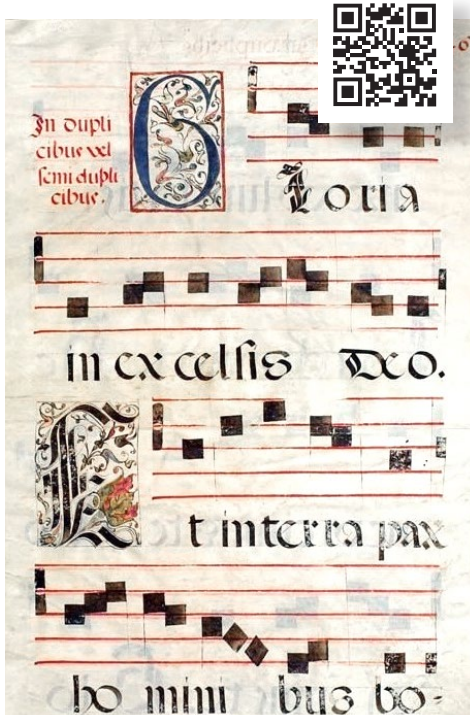 In dupli
cibus vel
semi dupli
cibus.
Gloria
in excelsis Deo.
Et in terra pax
ho mini bus bo-